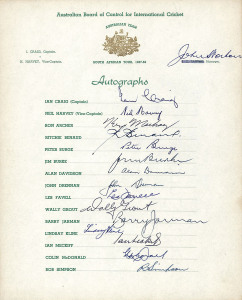 Australian Board of Control for International Cricket
AUSTRALIAN TEAM
SOUTH AFRICAN TOUR, 1957-58
J. CRAIG (Captain)
N. HARVEY (Vice-Captain)
Autographs
IAN CRAIG (Captain) Ian Craig
NEIL HARVEY (Vice-Captain) Neil Harvey
RON ARCHER
RICHIE BENAUD R Benaud
PETER BURGE Peter Burge
JIM BURKE Jim Burke
ALAN DAVIDSON Alan Davidson
JOHN DRENNAN John Drennan
LES FAVELL Les Favell
WALLY GROUT Wally Grout
BARRY JARMAN Barry Jarman
LINDSAY KLINE Lindsay Kline
IAN MECKIFF Ian Meckiff
COLIN McDONALD
BOB SIMPSON R Simpson